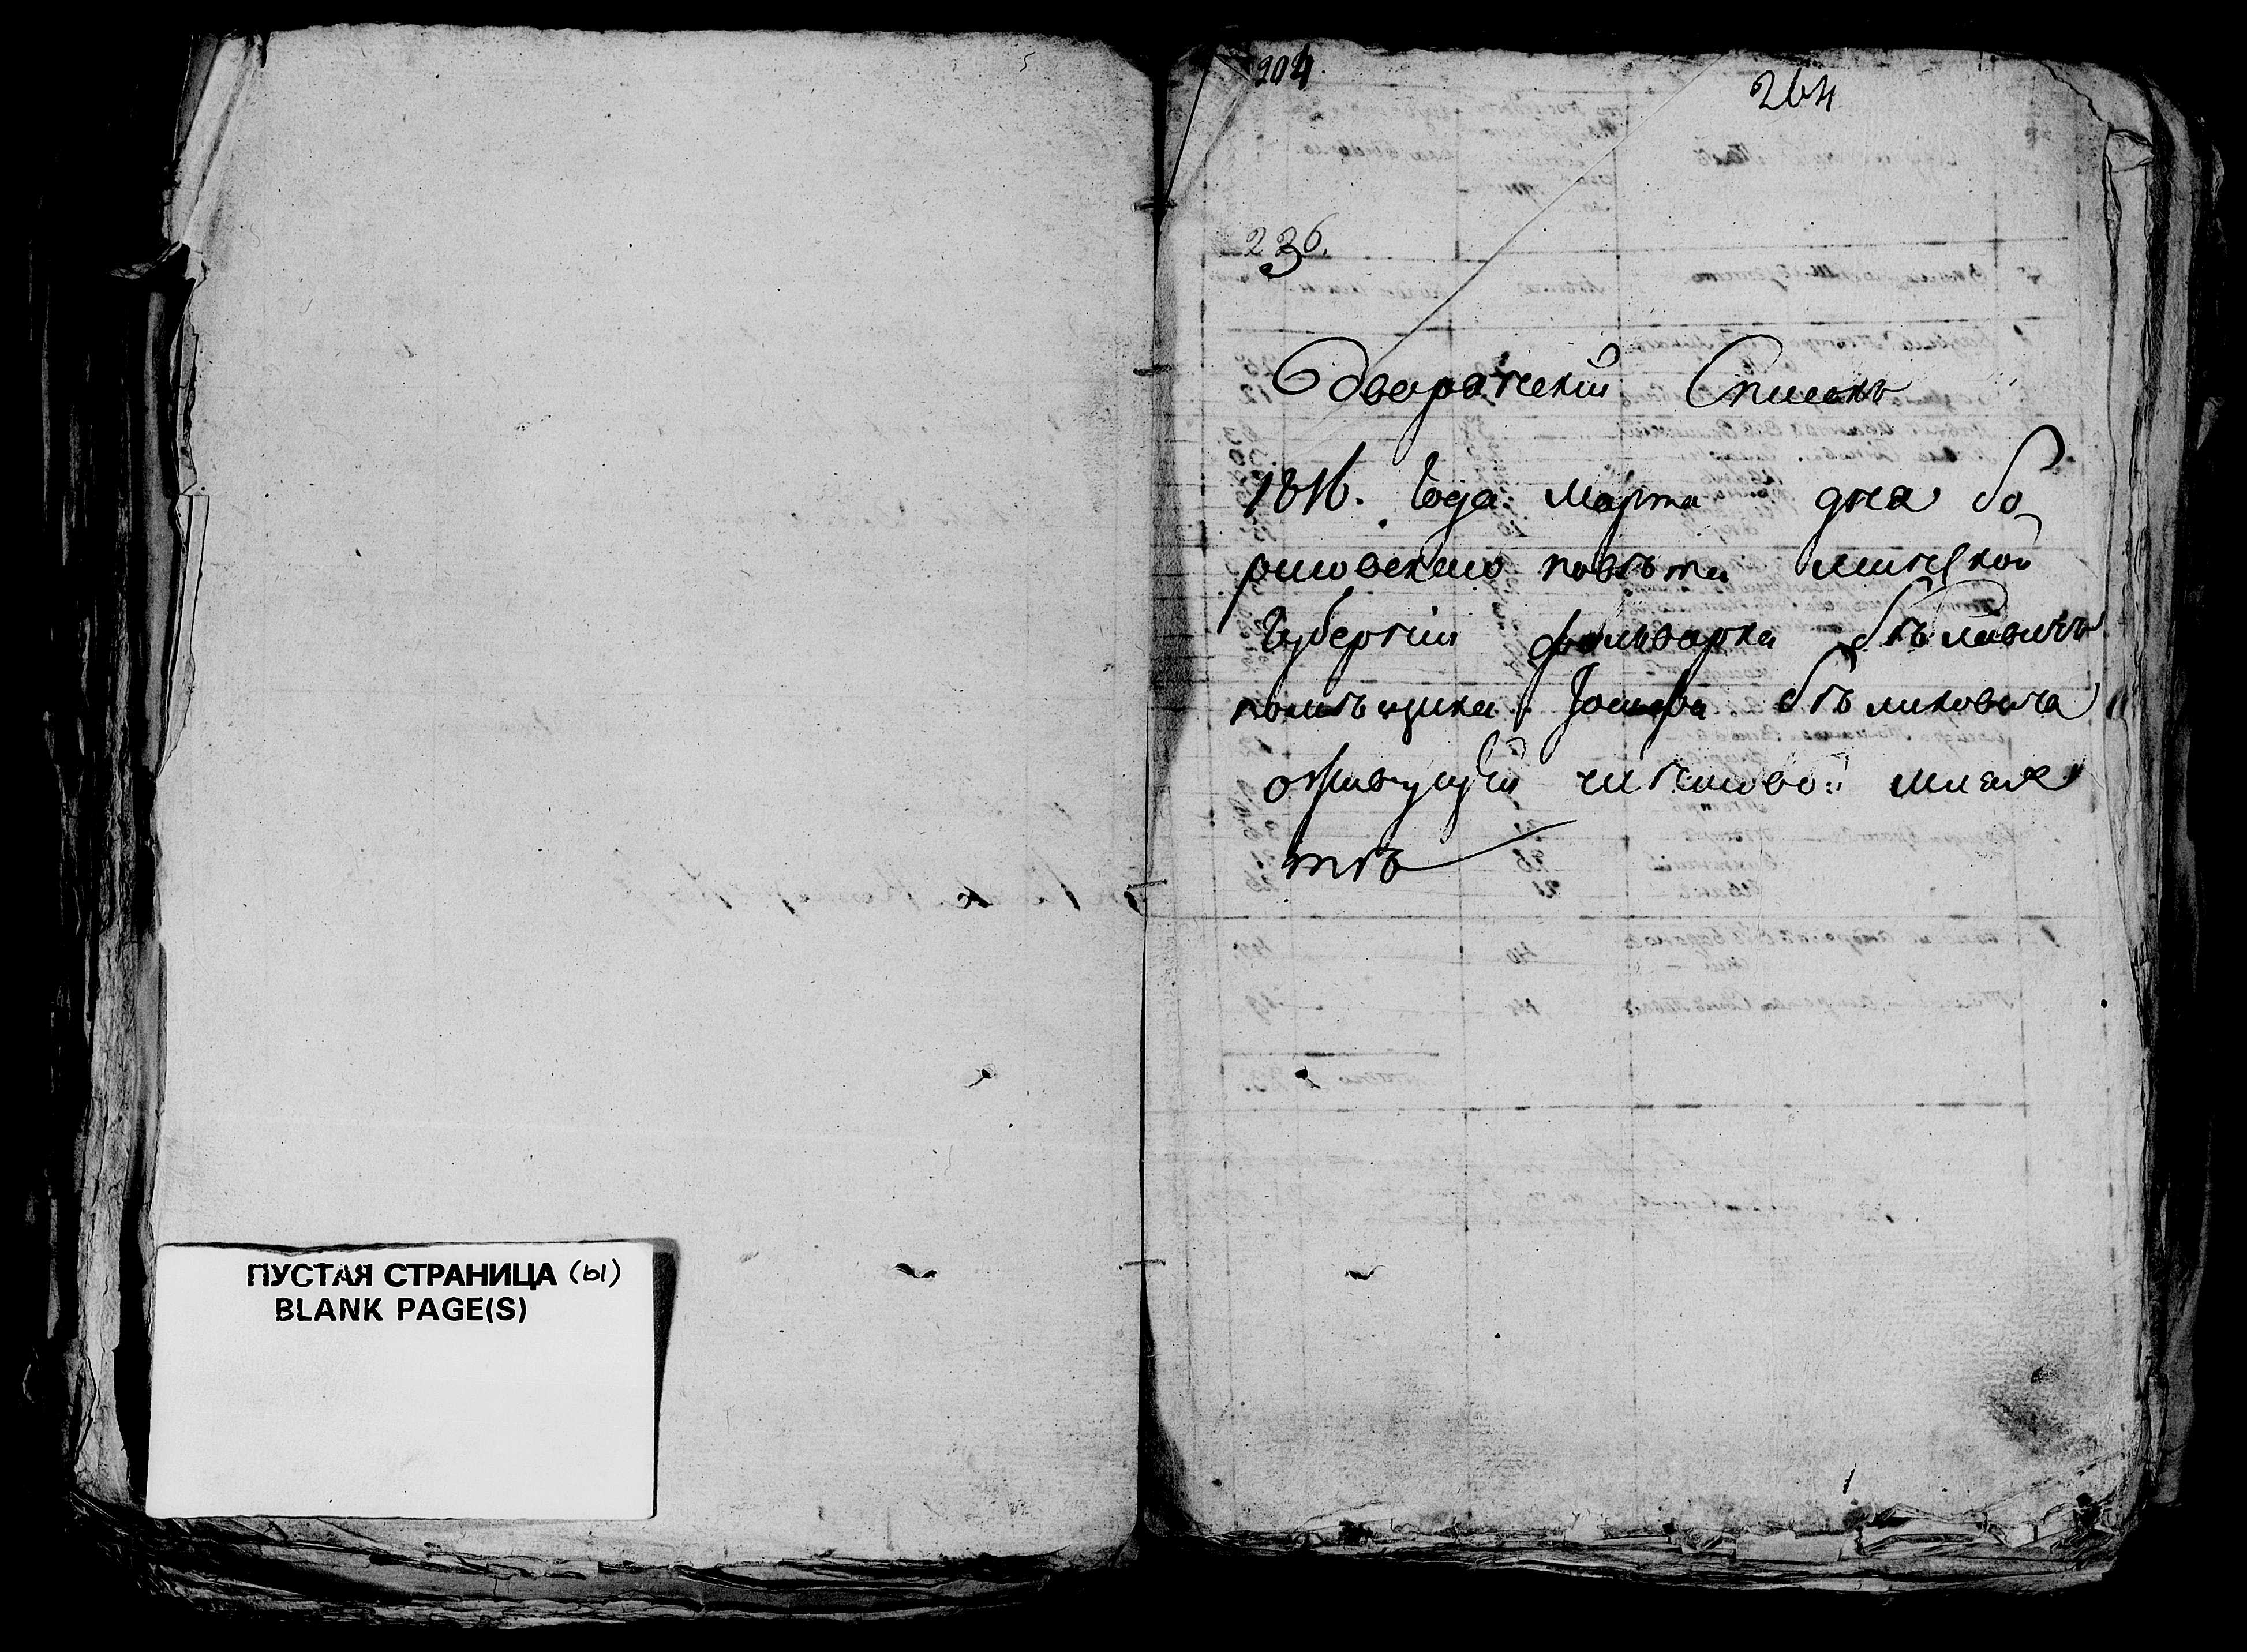 ПУСТАЯ СТРАНИЦА (Ы)
BLANK PAGE(S)
204
264
236.
Одворатский Списокъ
1816. Года Марта дня бо
рисовскаго повѣта минской
Губернии фольварка
помѣщика Іосифа бѣликовича
о живущей чиншовой шлях
тѣ